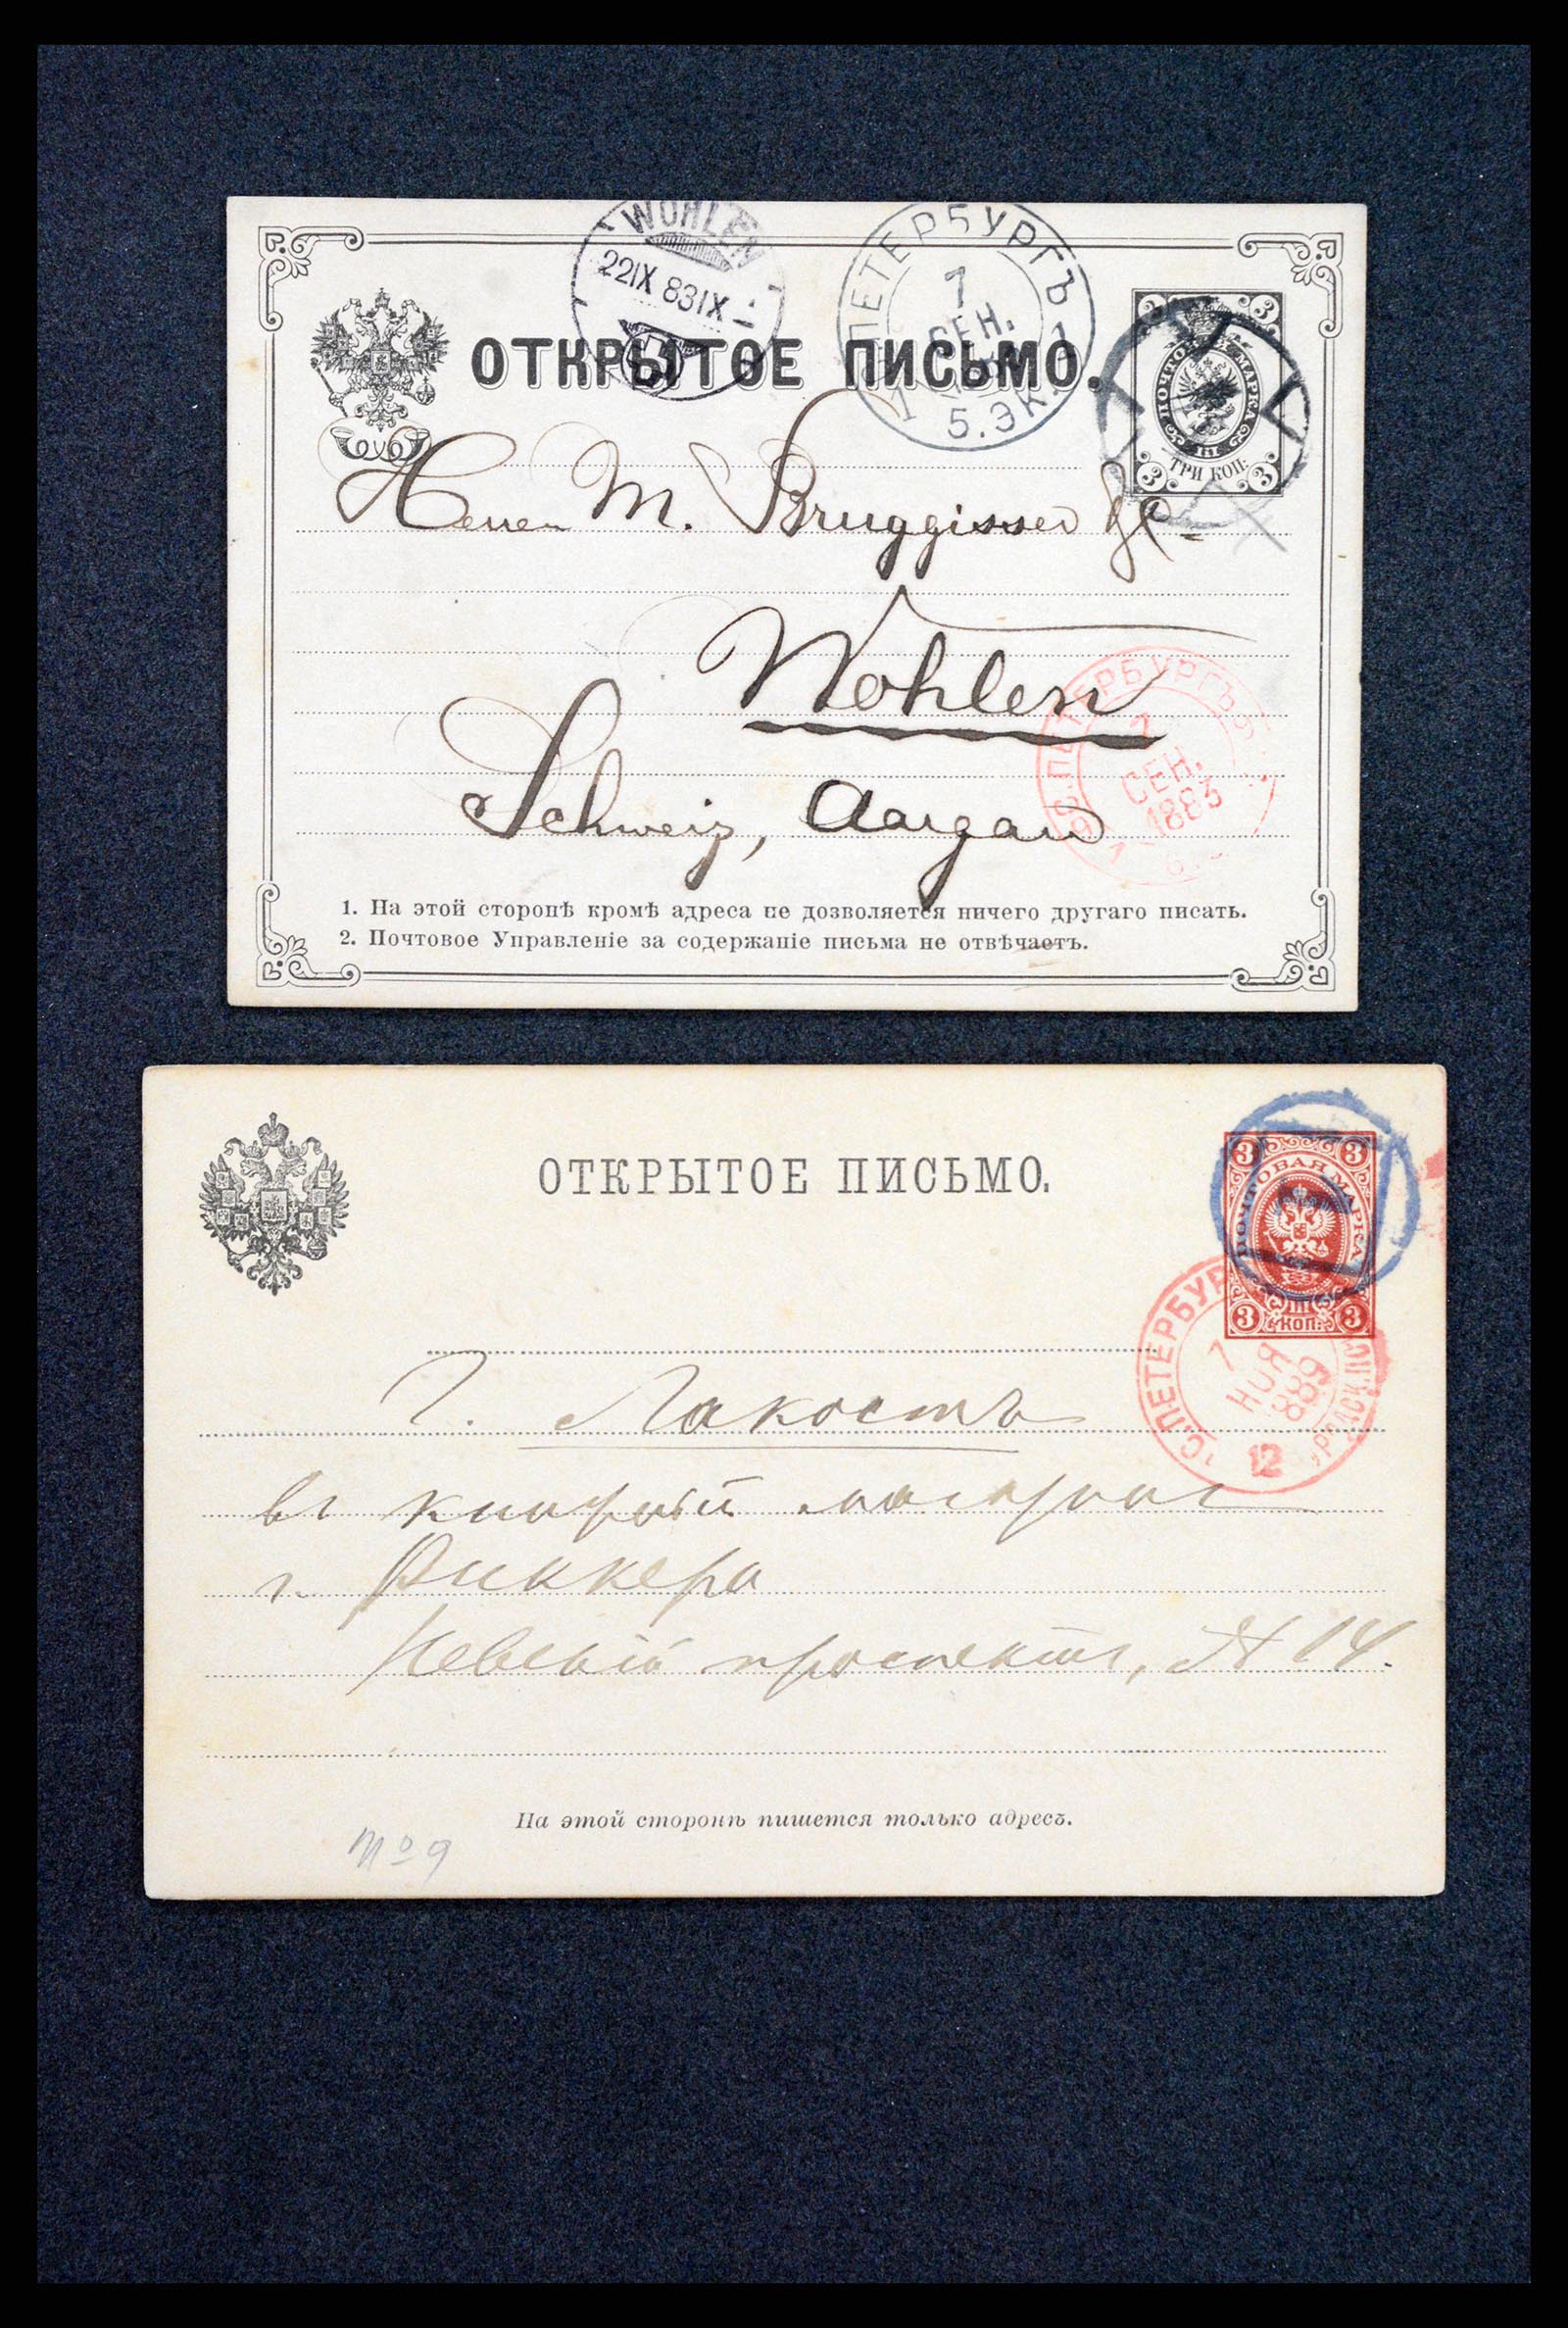 WOHLEN
22IX 83IX
ПЕТЕРБУРГЪ
7
СЕН.
1
5.ЭК.
ОТКРЫТОЕ ПИСЬМО.
3 3
ПОЧТОВАЯ МАРКА
ТРИ КОП.
3 3
Herren M. Bruggisser & Cº
Wohlen
Schweiz, Aargau
С.ПЕТЕРБУРГЪ
7
СЕН.
1883
1. На этой сторонѣ кромѣ адреса не дозволяется ничего другаго писать.
2. Почтовое Управленіе за содержаніе письма не отвѣчаетъ.
ОТКРЫТОЕ ПИСЬМО.
3 3
ПОЧТОВАЯ МАРКА
3 КОП. 3
С.ПЕТЕРБУР
7
НОЯ
1889
12
Г. Лакостъ
въ книжный магазинъ
г. Риккера
Невскій проспектъ, № 14.
На этой сторонѣ пишется только адресъ.
Nº 9